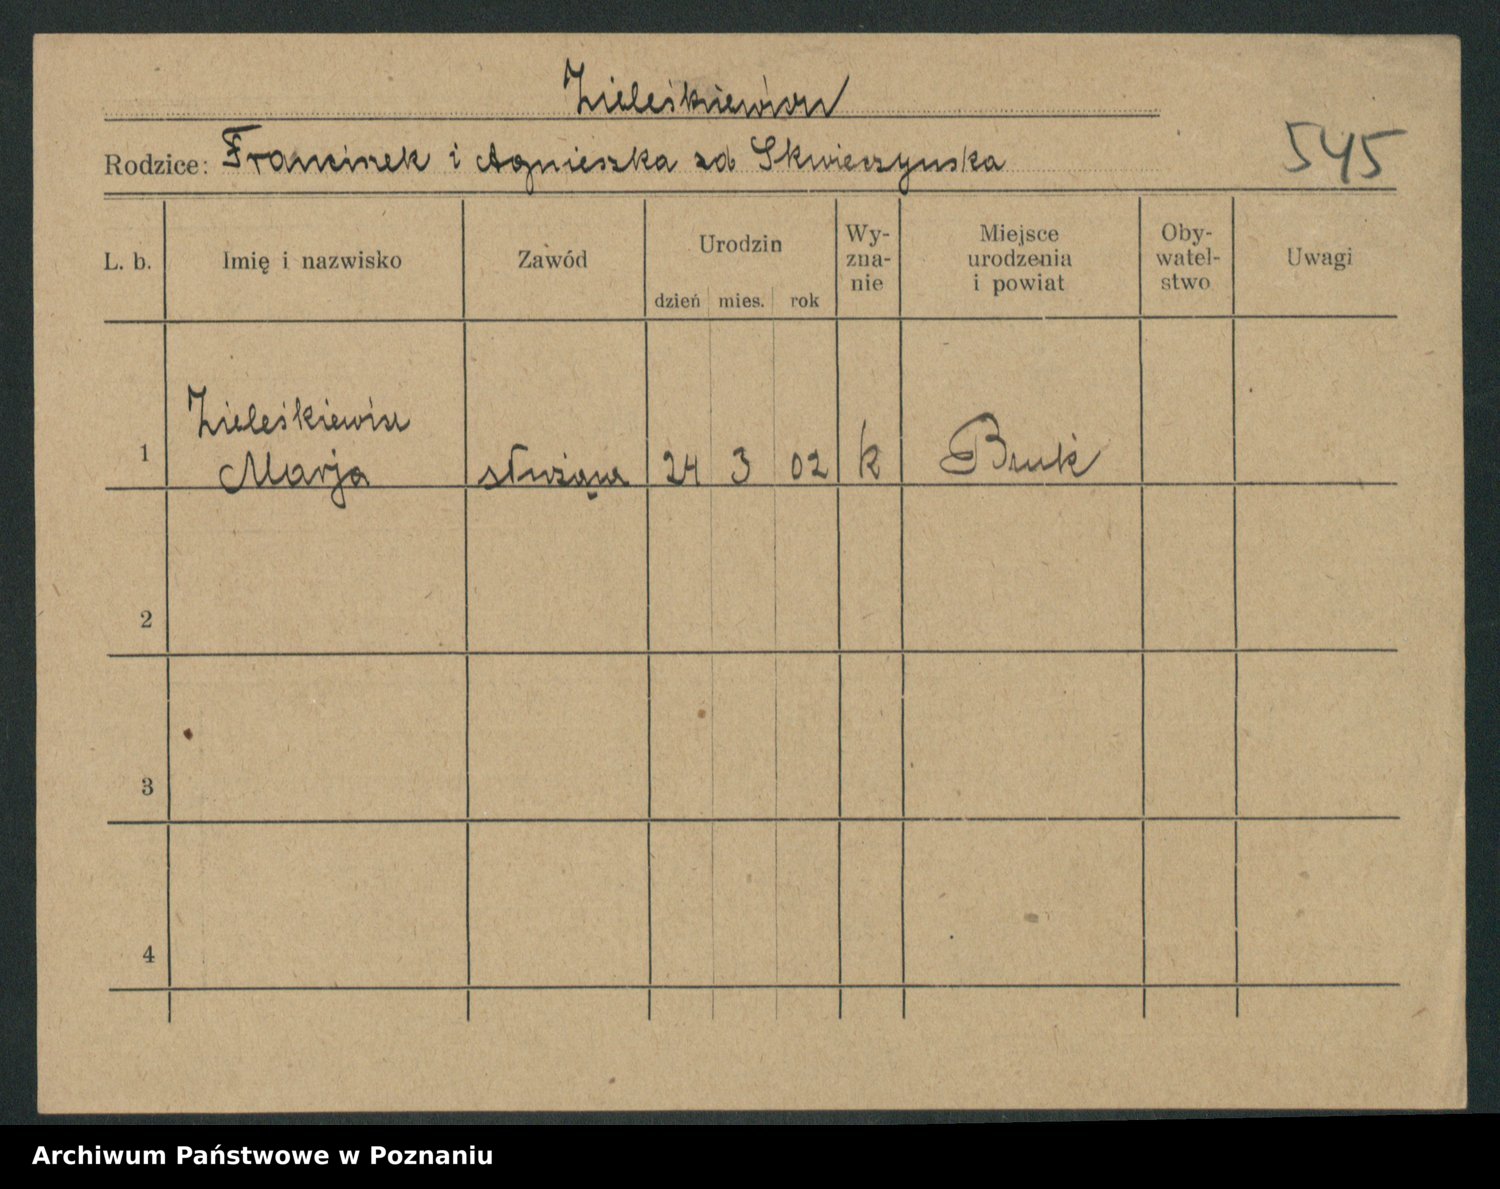 Zieleśkiewicz
Rodzice: Franciszek i Agnieszka zd Skwierzynska
545
L. b. Imię i nazwisko Zawód Urodzin Wy-zna-nie Miejsce urodzenia i powiat Oby-watel-stwo Uwagi
dzień mies. rok
Zieleśkiewicz
1 Marja służąca 24 3 02 k Buk
2
3
4
Archiwum Państwowe w Poznaniu